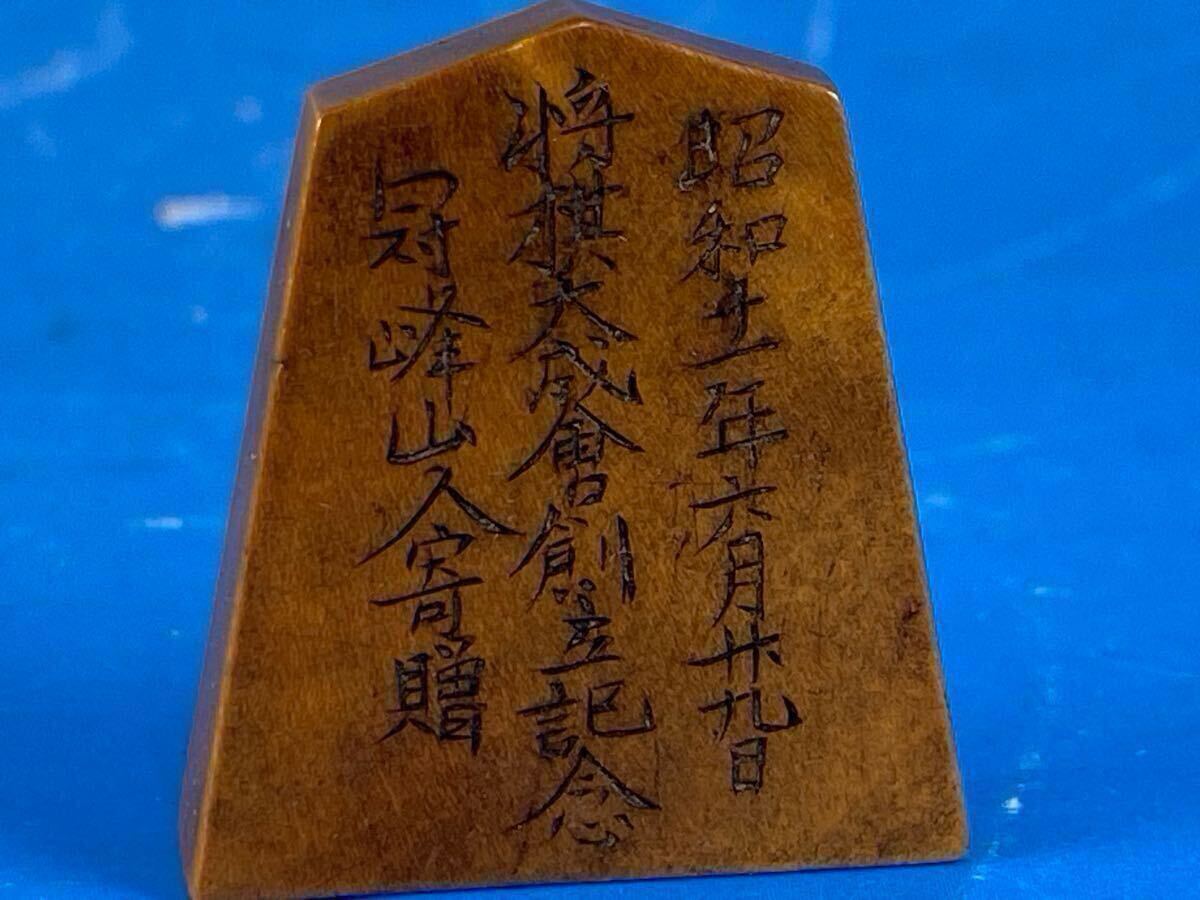 昭和十一年六月廿九日
将棋大成會創立記念
冠峰山人寄贈